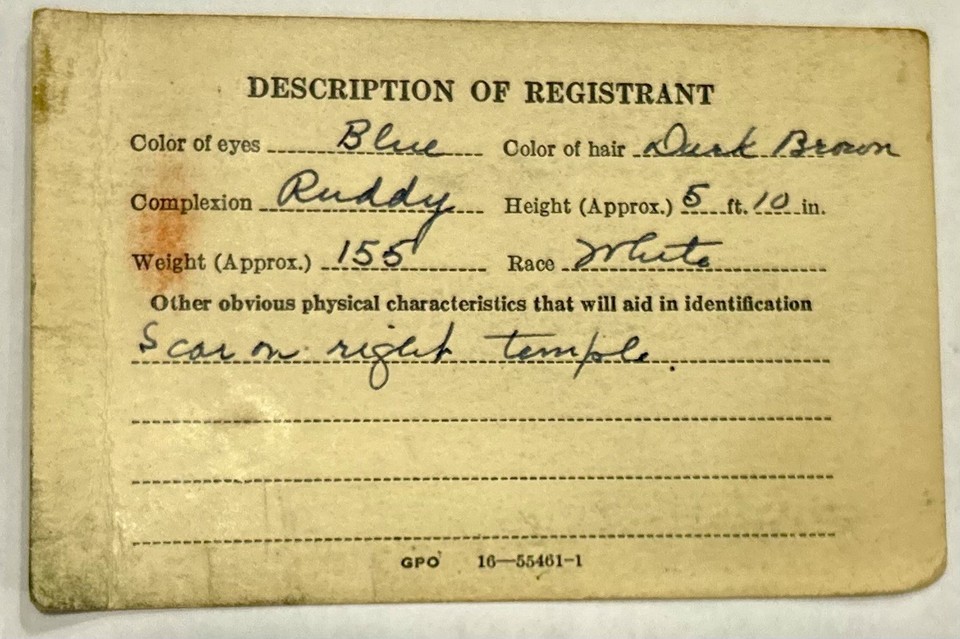 DESCRIPTION OF REGISTRANT
Color of eyes Blue Color of hair Dark Brown
Complexion Ruddy Height (Approx.) 5 ft. 10 in.
Weight (Approx.) 155 Race White
Other obvious physical characteristics that will aid in identification
Scar on right temple.
GPO 16—55461-1